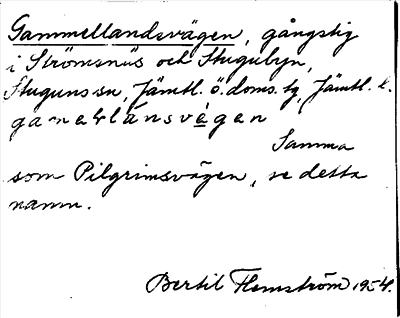 Gammellandsvägen, gångstig
i Strömsnäs och Stugubyn,
Stuguns sn, Jämtl. ö. doms. tg, Jämtl. l.
végen
Samma
som Pilgrimsvägen, se detta
namn.
Bertil Flemström 1954.